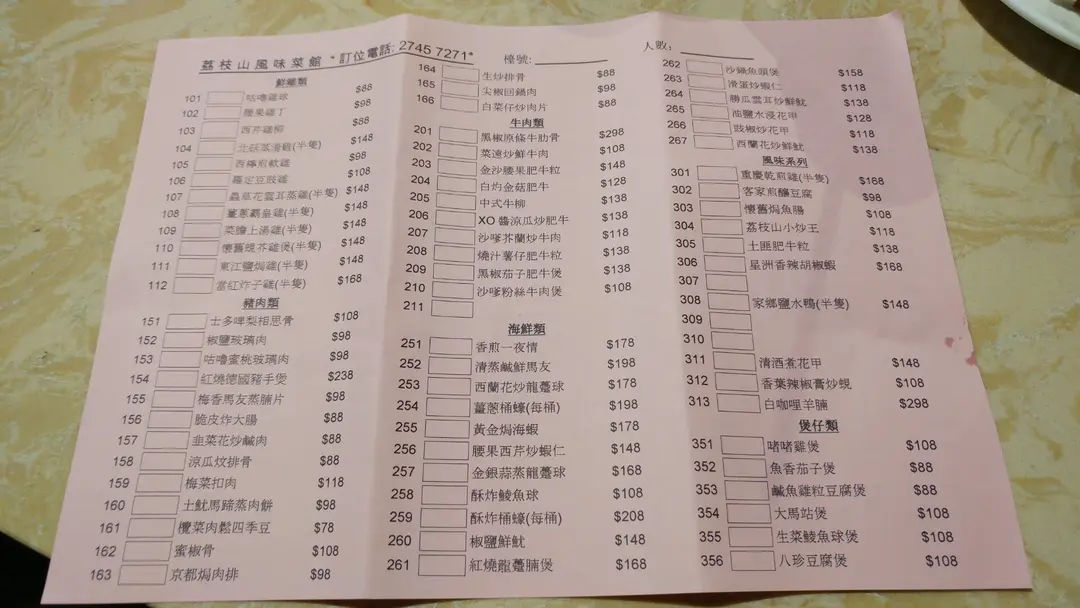 荔枝山風味菜館 *訂位電話: 2745 7271*
檯號:
人數:
鮮雞類
101 咕嚕雞球 $88
102 腰果雞丁 $98
103 西芹雞柳 $88
104 北菇蒸滑雞(半隻) $148
105 西檸煎軟雞 $98
106 羅定豆豉雞 $108
107 蟲草花雲耳蒸雞(半隻) $148
108 薑蔥霸皇雞(半隻) $148
109 菜膽上湯雞(半隻) $148
110 懷舊蜆芥雞煲(半隻) $148
111 東江鹽焗雞(半隻) $148
112 當紅炸子雞(半隻) $168
豬肉類
151 士多啤梨相思骨 $108
152 椒鹽玻璃肉 $98
153 咕嚕蜜桃玻璃肉 $98
154 紅燒德國豬手煲 $238
155 梅香馬友蒸腩片 $98
156 脆皮炸大腸 $88
157 韭菜花炒鹹肉 $88
158 涼瓜炆排骨 $88
159 梅菜扣肉 $118
160 土魷馬蹄蒸肉餅 $98
161 欖菜肉鬆四季豆 $78
162 蜜椒骨 $108
163 京都焗肉排 $98
164 生炒排骨 $88
165 尖椒回鍋肉 $98
166 白菜仔炒肉片 $88
牛肉類
201 黑椒原條牛肋骨 $298
202 菜遠炒鮮牛肉 $108
203 金沙腰果肥牛粒 $148
204 白灼金菇肥牛 $128
205 中式牛柳 $138
206 XO 醬涼瓜炒肥牛 $138
207 沙嗲芥蘭炒牛肉 $118
208 燒汁薯仔肥牛粒 $138
209 黑椒茄子肥牛煲 $138
210 沙嗲粉絲牛肉煲 $108
211
海鮮類
251 香煎一夜情 $178
252 清蒸鹹鮮馬友 $198
253 西蘭花炒龍躉球 $178
254 薑蔥桶蠔(每桶) $198
255 黃金焗海蝦 $178
256 腰果西芹炒蝦仁 $148
257 金銀蒜蒸龍躉球 $168
258 酥炸鯪魚球 $108
259 酥炸桶蠔(每桶) $208
260 椒鹽鮮魷 $148
261 紅燒龍躉腩煲 $168
262 沙鍋魚頭煲 $158
263 滑蛋炒蝦仁 $118
264 勝瓜雲耳炒鮮魷 $138
265 油鹽水浸花甲 $128
266 豉椒炒花甲 $118
267 西蘭花炒鮮魷 $138
風味系列
301 重慶乾煎雞(半隻) $168
302 客家煎釀豆腐 $98
303 懷舊焗魚腸 $108
304 荔枝山小炒王 $118
305 土匪肥牛粒 $138
306 星洲香辣胡椒蝦 $168
307
308 家鄉鹽水鴨(半隻) $148
309
310
311 清酒煮花甲 $148
312 香葉辣椒膏炒蜆 $108
313 白咖哩羊腩 $298
煲仔類
351 啫啫雞煲 $108
352 魚香茄子煲 $88
353 鹹魚雞粒豆腐煲 $88
354 大馬站煲 $108
355 生菜鯪魚球煲 $108
356 八珍豆腐煲 $108